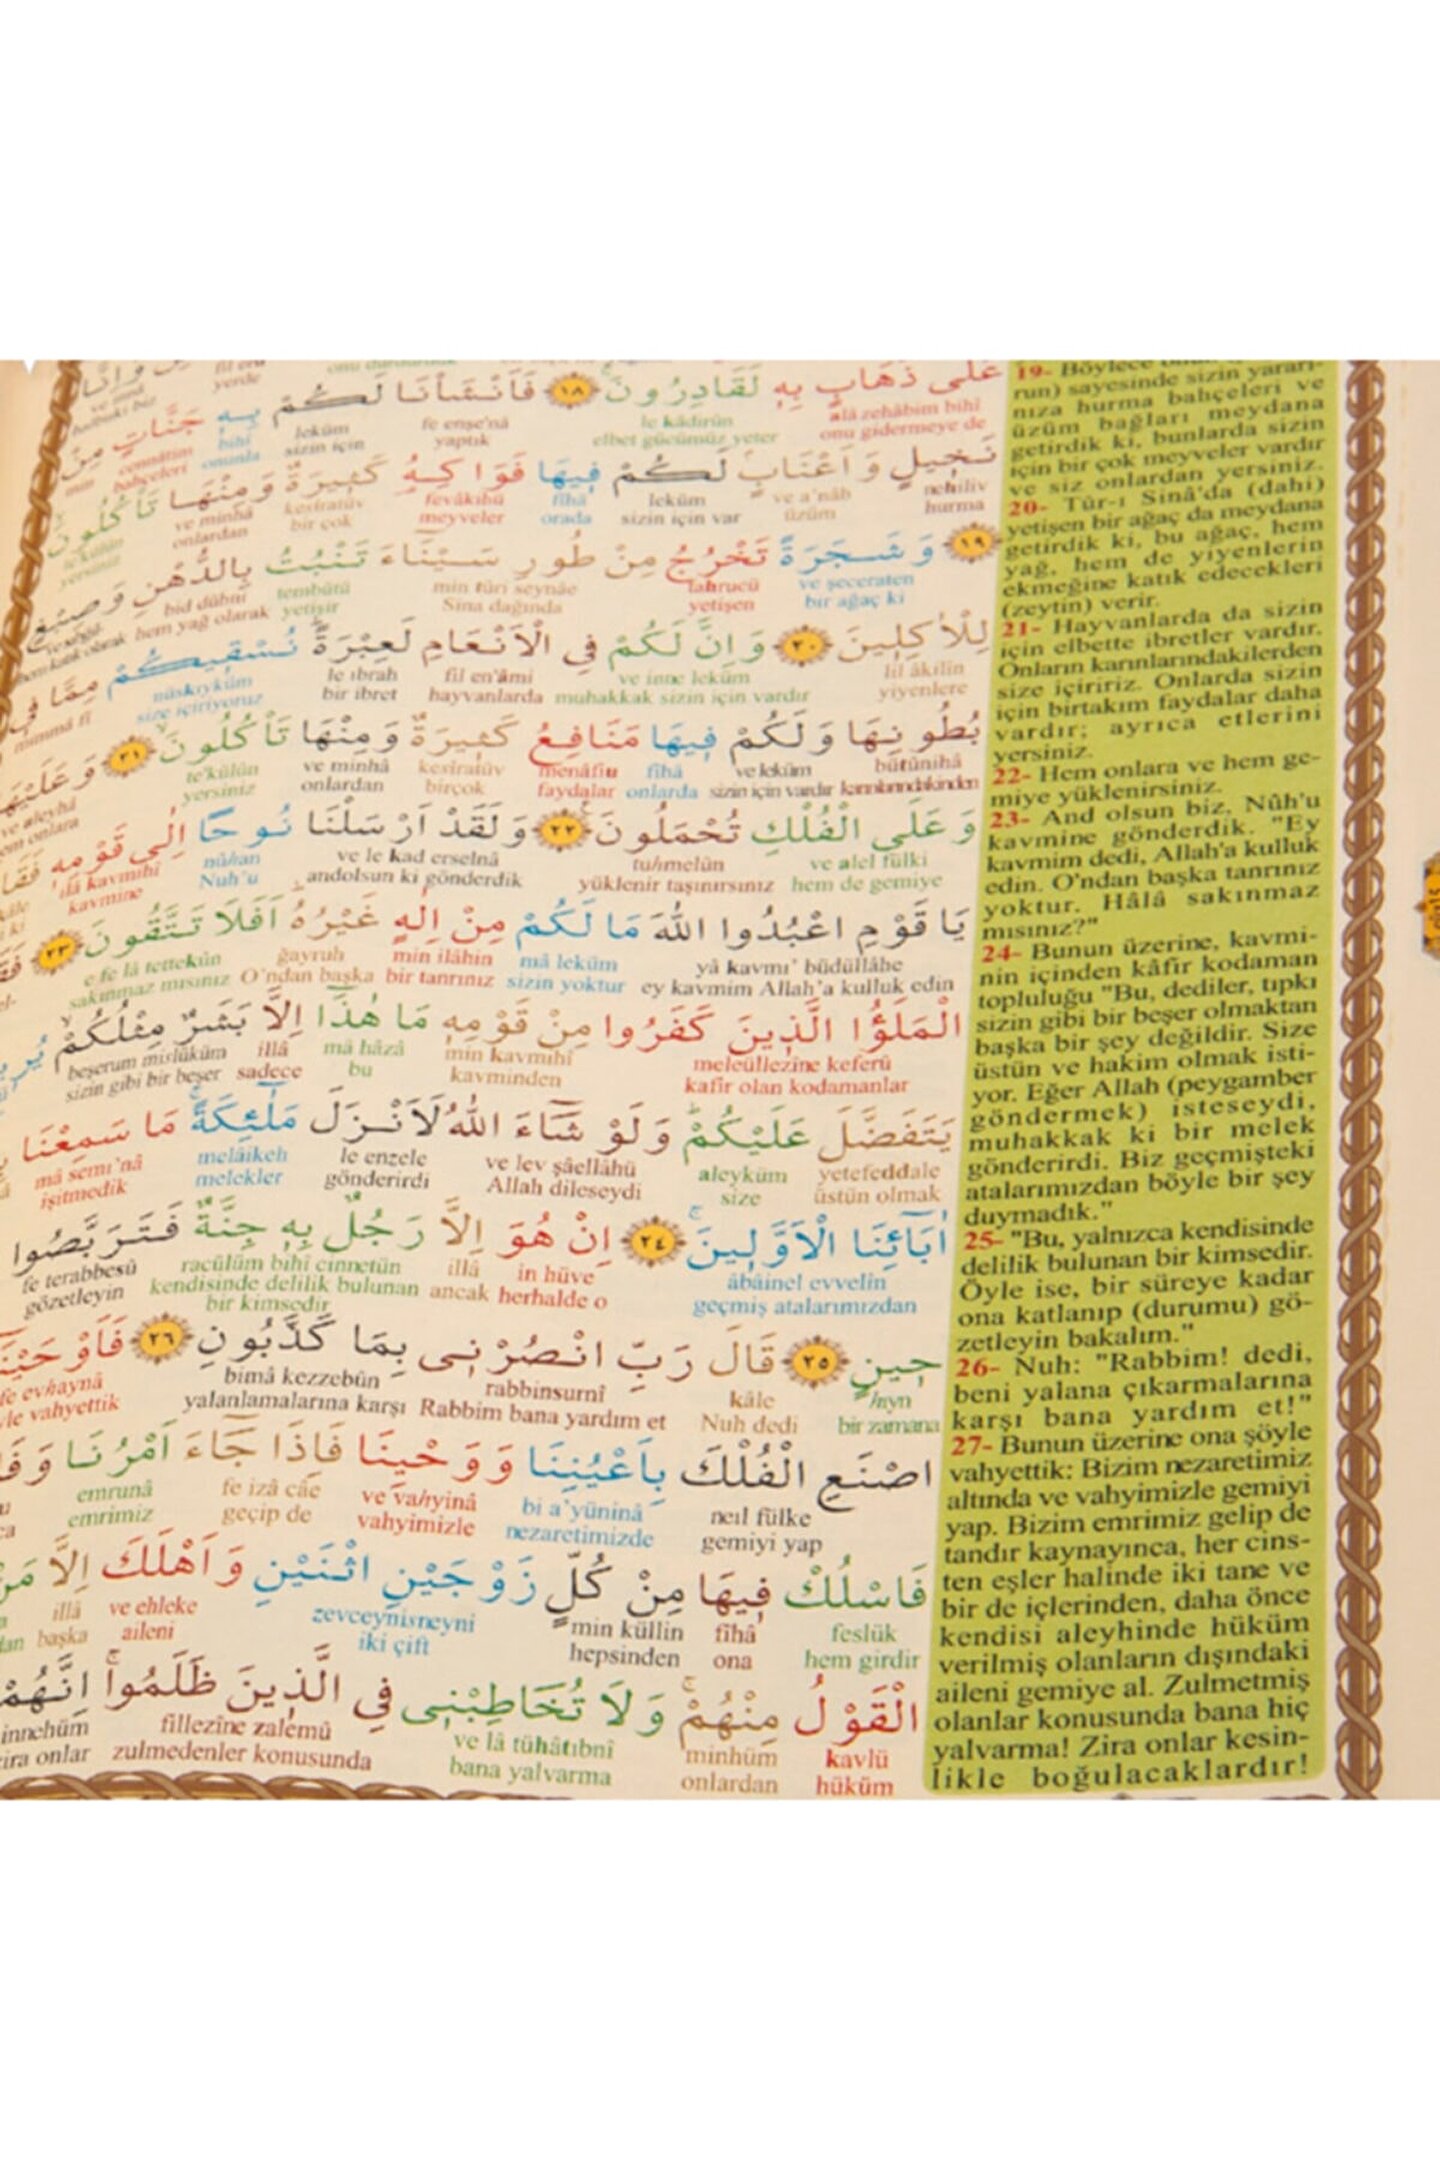 عَلٰى ذَهَابٍ بِهٖ لَقَادِرُونَۚ ﴿١٨﴾ فَاَنْشَاْنَا لَكُمْ بِهٖ جَنَّاتٍ مِنْ
alâ zehâbim bihî le kâdirûn fe enşe'nâ leküm bihî cennâtim min
onu gidermeye de elbet gücümüz yeter yaptık sizin için onunla bahçeleri
نَخٖيلٍ وَاَعْنَابٍۢ لَكُمْ فٖيهَا فَوَاكِهُ كَثٖيرَةٌ وَمِنْهَا تَاْكُلُونَۙ
nehîliv ve a'nâb leküm fîhâ fevâkihü kesîratüv ve minhâ te'külûn
hurma üzüm sizin için var orada meyveler bir çok onlardan yersiniz
﴿١٩﴾ وَشَجَرَةً تَخْرُجُ مِنْ طُورِ سَيْنَٓاءَ تَنْبُتُ بِالدُّهْنِ وَصِبْغٍ
ve şeceraten tahrucü min tûri seynâe tembütü bid dühni ve sıbğıl
bir ağaç ki yetişen Sina dağında yetişir hem yağ olarak hem katık olarak
لِلْاٰكِلٖينَ ﴿٢٠﴾ وَاِنَّ لَكُمْ فِي الْاَنْعَامِ لَعِبْرَةًۜ نُسْقٖيكُمْ مِمَّا فٖي
lil âkilîn ve inne leküm fil en'âmi le ıbrah nüskıyküm mimmâ fî
yiyenlere muhakkak sizin için vardır hayvanlarda bir ibret size içiriyoruz
بُطُونِهَا وَلَكُمْ فٖيهَا مَنَافِعُ كَثٖيرَةٌ وَمِنْهَا تَاْكُلُونَۙ ﴿٢١﴾ وَعَلَيْهَا
bütûnihâ ve leküm fîhâ menâfiu kesîratüv ve minhâ te'külûn ve aleyhâ
karınlarındakinden sizin için vardır onlarda faydalar birçok onlardan yersiniz
وَعَلَى الْفُلْكِ تُحْمَلُونَ ﴿٢٢﴾ وَلَقَدْ اَرْسَلْنَا نُوحًا اِلٰى قَوْمِهٖ
ve alel fülki tuhmelûn ve le kad erselnâ nûhan ilâ kavmihî
hem de gemiye yüklenir taşınırsınız andolsun ki gönderdik Nuh'u kavmine
يَا قَوْمِ اعْبُدُوا اللّٰهَ مَا لَكُمْ مِنْ اِلٰهٍ غَيْرُهُۜ اَفَلَا تَتَّقُونَ ﴿٢٣﴾
yâ kavmı' büdüllâhe mâ leküm min ilâhin ğayruh e fe lâ tettekûn
ey kavmim Allah'a kulluk edin sizin yoktur bir tanrınız O'ndan başka sakınmaz mısınız
الْمَلَؤُا الَّذٖينَ كَفَرُوا مِنْ قَوْمِهٖ مَا هٰذَٓا اِلَّا بَشَرٌ مِثْلُكُمْۙ
meleüllezîne keferû min kavmihî mâ hâzâ illâ beşerum mislüküm
kafir olan kodamanlar kavminden bu sadece sizin gibi bir beşer
يَتَفَضَّلَ عَلَيْكُمْۜ وَلَوْ شَٓاءَ اللّٰهُ لَاَنْزَلَ مَلٰٓئِكَةًۚ مَا سَمِعْنَا
yetefeddale aleyküm ve lev şâellâhü le enzele melâikeh mâ semı'nâ
üstün olmak size Allah dileseydi gönderirdi melekler işitmedik
اٰبَٓائِنَا الْاَوَّلٖينَۚ ﴿٢٤﴾ اِنْ هُوَ اِلَّا رَجُلٌ بِهٖ جِنَّةٌ فَتَرَبَّصُوا
âbâinel evvelîn in hüve illâ racülüm bihî cinnetün fe terabbesû
geçmiş atalarımızdan herhalde o ancak kendisinde delilik bulunan gözetleyin
bir kimsedir
حٖينٍ ﴿٢٥﴾ قَالَ رَبِّ انْصُرْنٖي بِمَا كَذَّبُونِ ﴿٢٦﴾ فَاَوْحَيْنَٓا
hıyn kâle rabbinsurnî bimâ kezzebûn fe evhaynâ
bir zamana Nuh dedi Rabbim bana yardım et yalanlamalarına karşı
اصْنَعِ الْفُلْكَ بِاَعْيُنِنَا وَوَحْيِنَا فَاِذَا جَٓاءَ اَمْرُنَا
neıl fülke bi a'yüninâ ve vahyinâ fe izâ câe emrunâ
gemiyi yap nezaretimizde vahyimizle geçip de emrimiz
فَاسْلُكْ فٖيهَا مِنْ كُلٍّ زَوْجَيْنِ اثْنَيْنِ وَاَهْلَكَ اِلَّا
feslük fîhâ min küllin zevceynisneyni ve ehleke illâ
hem girdir ona hepsinden iki çift aileni başka
الْقَوْلُ مِنْهُمْۚ وَلَا تُخَاطِبْنٖي فِي الَّذٖينَ ظَلَمُواۚ اِنَّهُمْ
kavlü minhüm ve lâ tühâtıbnî fillezîne zalemû innehüm
hüküm onlardan bana yalvarma zulmedenler konusunda zira onlar
19- Böylece
run) sayesinde sizin yararı-
nıza hurma bahçeleri ve
üzüm bağları meydana
getirdik ki, bunlarda sizin
için bir çok meyveler vardır
ve siz onlardan yersiniz.
20- Tûr-ı Sinâ'da (dahi)
yetişen bir ağaç da meydana
getirdik ki, bu ağaç, hem
yağ, hem de yiyenlerin
ekmeğine katık edecekleri
(zeytin) verir.
21- Hayvanlarda da sizin
için elbette ibretler vardır.
Onların karınlarındakilerden
size içiririz. Onlarda sizin
için birtakım faydalar daha
vardır; ayrıca etlerini
yersiniz.
22- Hem onlara ve hem ge-
miye yüklenirsiniz.
23- And olsun biz, Nûh'u
kavmine gönderdik. "Ey
kavmim dedi, Allah'a kulluk
edin. O'ndan başka tanrınız
yoktur. Hâlâ sakınmaz
mısınız?"
24- Bunun üzerine, kavmi-
nin içinden kâfir kodaman
topluluğu "Bu, dediler, tıpkı
sizin gibi bir beşer olmaktan
başka bir şey değildir. Size
üstün ve hakim olmak isti-
yor. Eğer Allah (peygamber
göndermek) isteseydi,
muhakkak ki bir melek
gönderirdi. Biz geçmişteki
atalarımızdan böyle bir şey
duymadık."
25- "Bu, yalnızca kendisinde
delilik bulunan bir kimsedir.
Öyle ise, bir süreye kadar
ona katlanıp (durumu) gö-
zetleyin bakalım."
26- Nuh: "Rabbim! dedi,
beni yalana çıkarmalarına
karşı bana yardım et!"
27- Bunun üzerine ona şöyle
vahyettik: Bizim nezaretimiz
altında ve vahyimizle gemiyi
yap. Bizim emrimiz gelip de
tandır kaynayınca, her cins-
ten eşler halinde iki tane ve
bir de içlerinden, daha önce
kendisi aleyhinde hüküm
verilmiş olanların dışındaki
aileni gemiye al. Zulmetmiş
olanlar konusunda bana hiç
yalvarma! Zira onlar kesin-
likle boğulacaklardır!